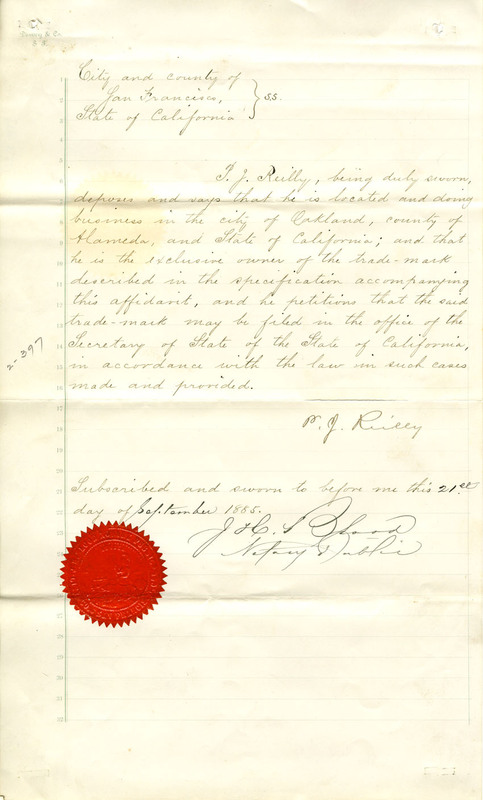 City and county of
San Francisco, } s.s.
State of California
P. J. Reilly, being duly sworn,
deposes and says that he is located and doing
business in the city of Oakland, county of
Alameda, and State of California; and that
he is the exclusive owner of the trade-mark
described in the specification accompanying
this affidavit, and he petitions that the said
trade-mark may be filed in the office of the
Secretary of State of the State of California,
in accordance with the law in such cases
made and provided.
2-397
P. J. Reilly
Subscribed and sworn to before me this 21st
day of September 1885.
Notary Public